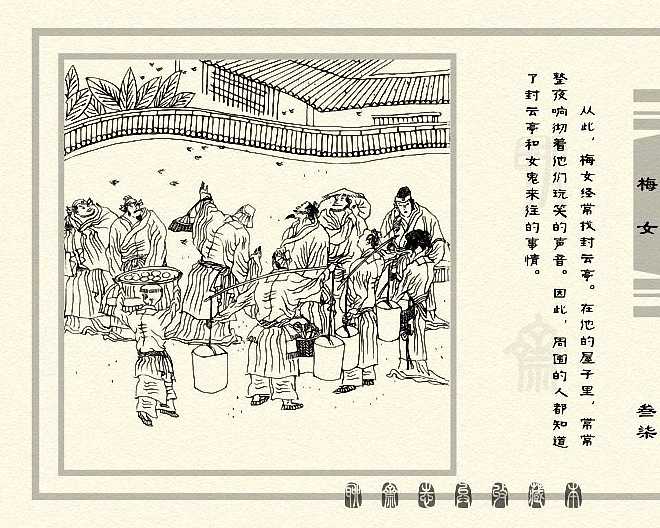 从此，梅女经常找封云亭。在他的屋子里，常常
整夜响彻着他们玩笑的声音。因此，周围的人都知道
了封云亭和女鬼来往的事情。
梅女
叁柒
聊斋志异收藏本